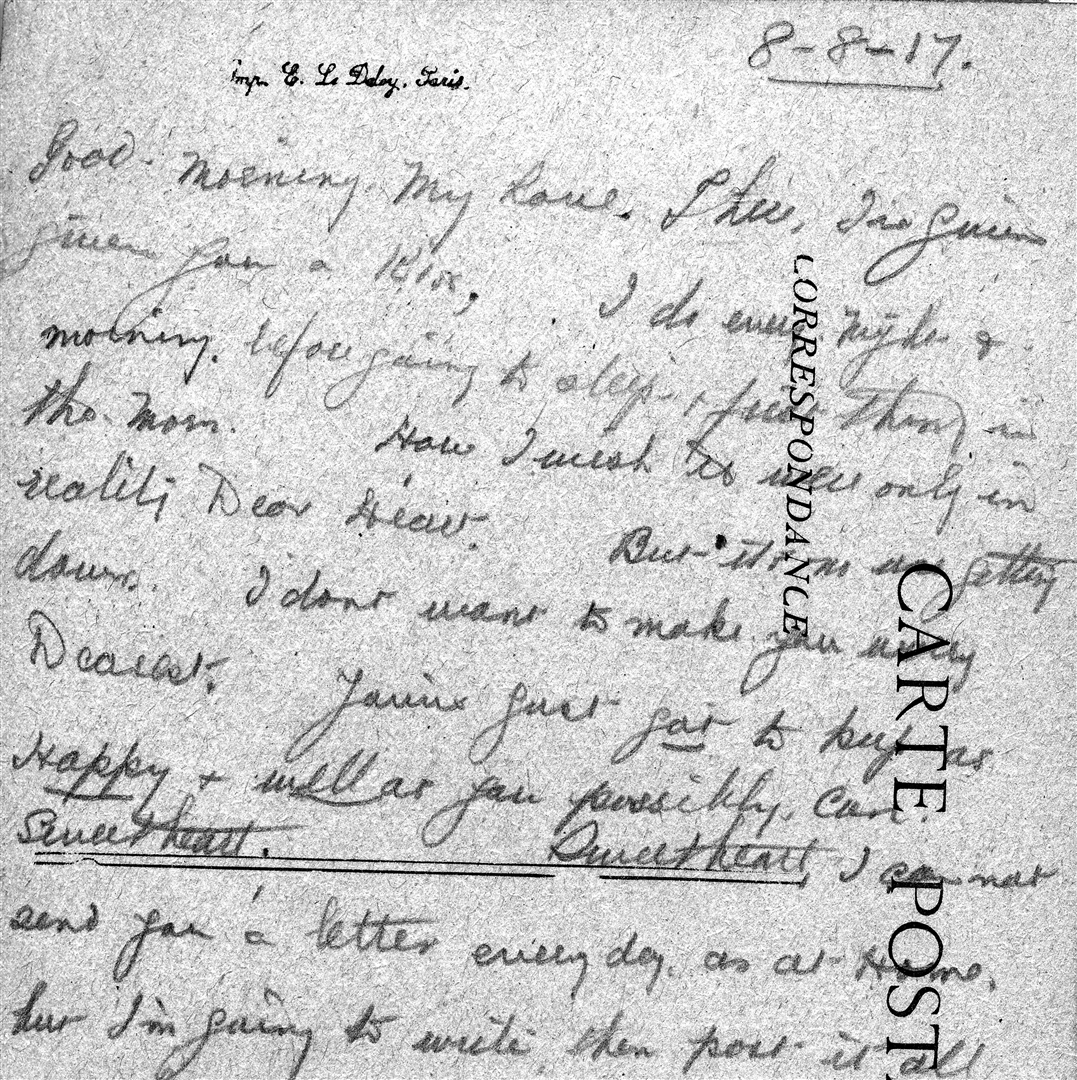 8-8-17.
Imp. E. Le Deley, Paris.
Good morning My Love. There, I've
given you a Kiss, I do every night &
morning. before going to sleep, first thing in
the morn. How I wish it were only in
reality Dear Heart. But this is getting
down. I dont want to make you
Dearest. You've just got to keep as
Happy & well as you possibly can
Sweetheart. Sweetheart I can not
send you a letter every day. as at Home,
but I'm going to write then post it all
CORRESPONDANCE
CARTE POST